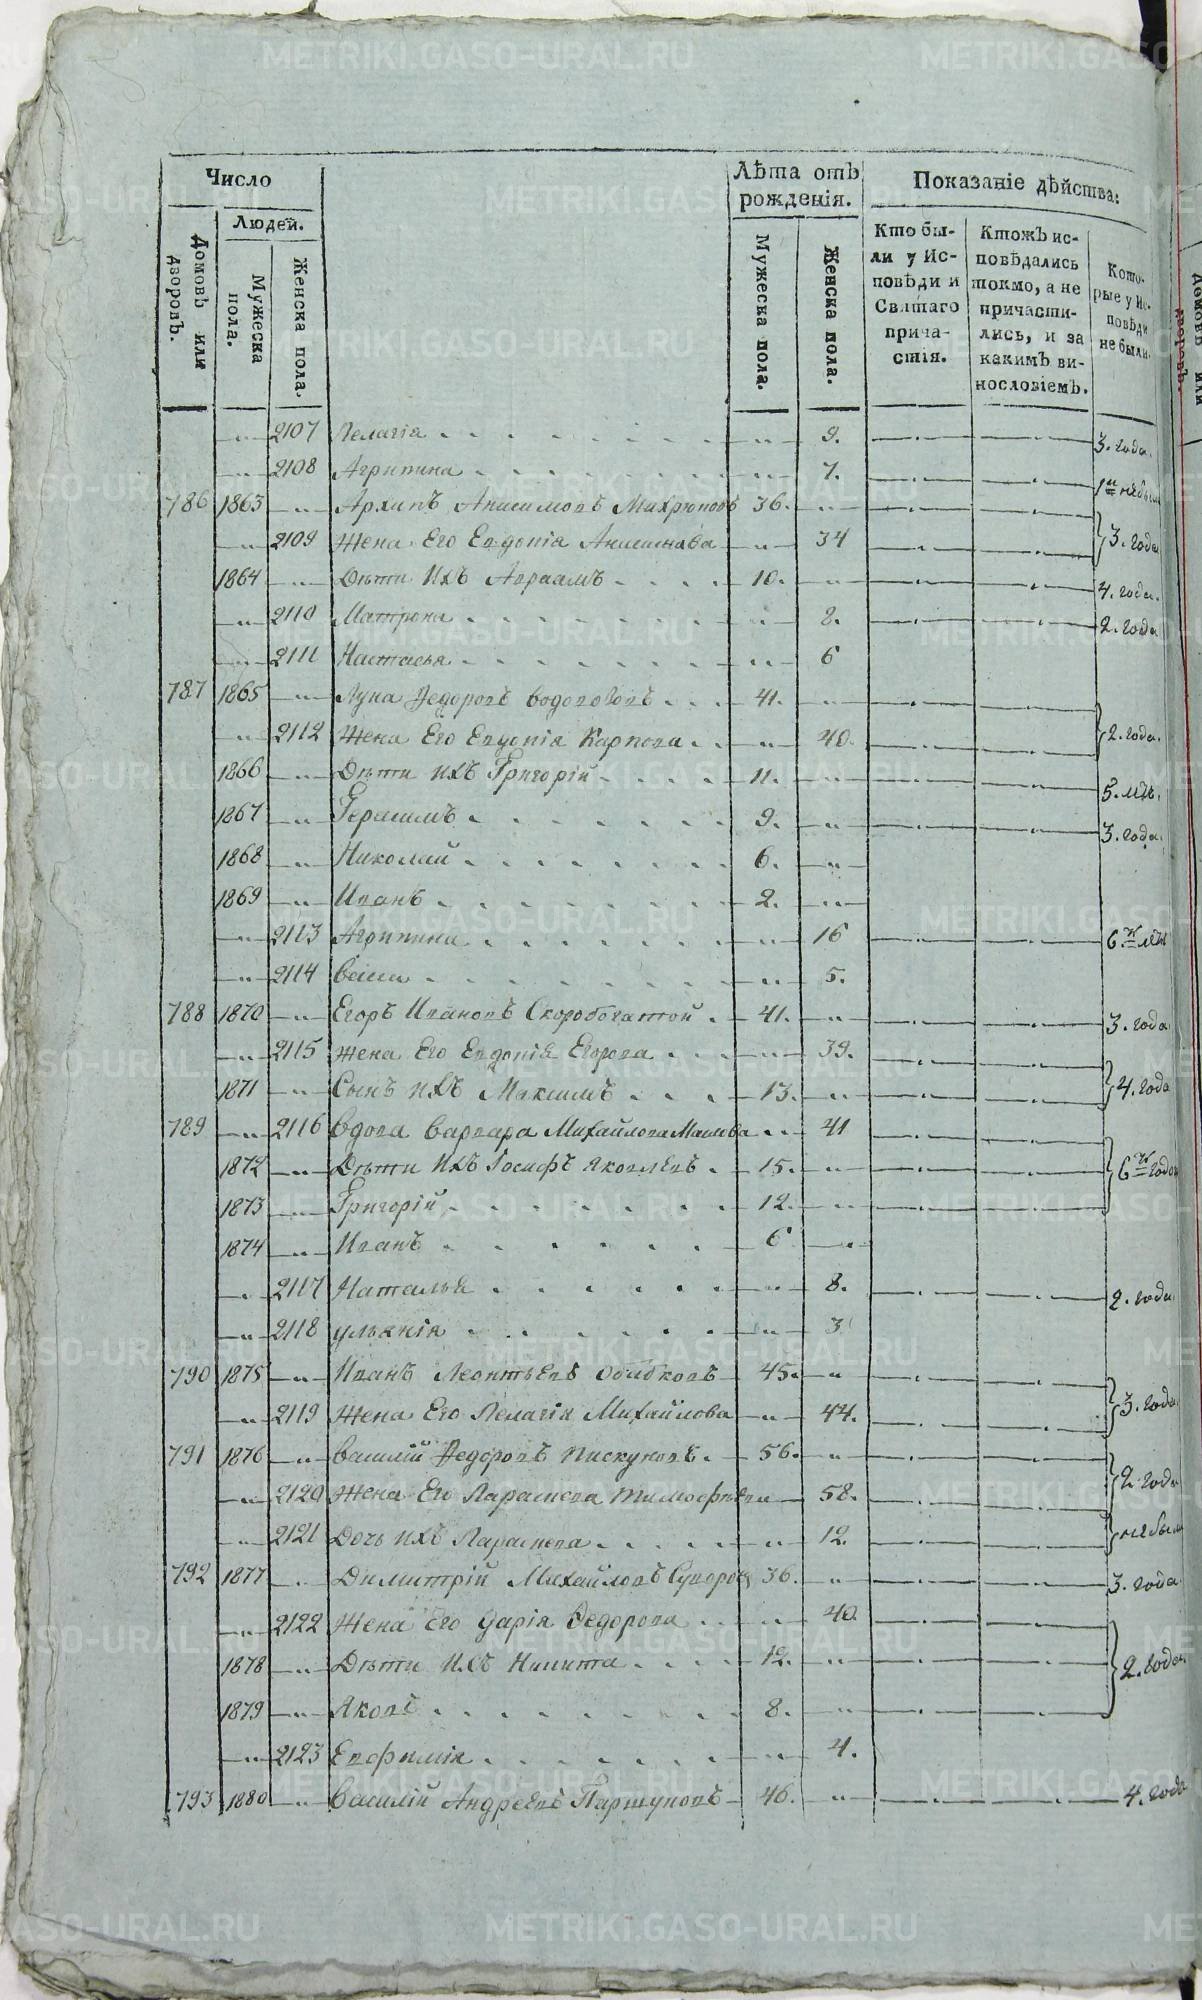 Число
Людей.
Домовъ или дворовъ.
Мужеска пола.
Женска пола.
Лѣта отъ рожденія.
Мужеска пола.
Женска пола.
Показаніе дѣйства:
Кто были у Исповѣди и Святаго причастія.
Ктожъ исповѣдались токмо, а не причастились, и за какимъ винословіемъ.
Которые у Исповѣди не были.
2107 Пелагія 9. 3. года.
2108 Агрипина 7. не были
786 1863 Архипъ Анисимовъ Михрюковъ 36.
2109 Жена Его Евдокія 34 3. года
1864 Дѣти ихъ Авраамъ 10. 4. года.
2110 Матрона 8. 2. года
2111 Настасья 6
787 1865 Лука Ѳедоровъ 41.
2112 Жена Его Евдокія Карпова 40. 2. года.
1866 Дѣти ихъ Григорій 11. 5. лѣтъ.
1867 Герасимъ 9. 3. года.
1868 Николай 6.
1869 Иванъ 2.
2113 Агрипина 16 6. лѣтъ
2114 5.
788 1870 Егоръ Ивановъ Скоробогатой 41. 3. года
2115 Жена Его Евдокія Егорова 39.
1871 Сынъ ихъ Максимъ 13. 4. года
789 2116 Вдова Варвара Михайлова 41
1872 Дѣти ихъ Іосифъ Яковлевъ 15. 6. годовъ
1873 Григорій 12.
1874 Иванъ 6
2117 Наталья 8. 2. года
2118 ульянія 3
790 1875 Иванъ Леонтьевъ 45.
2119 Жена Его Пелагія Михайлова 44. 3. года
791 1876 Василій Ѳедоровъ Пискуновъ 56.
2120 Жена Его Параскева Тимофѣева 58. 2 года
2121 Дочь ихъ Параскева 12. не были
792 1877 Димитрій Михайловъ Суворовъ 36. 3. года
2122 Жена Его Дарія Ѳедорова 40.
1878 Дѣти ихъ Никита 12. 2. года.
1879 Яковъ 8.
2123 Евфимія 4.
793 1880 Василій Андреевъ Паршуковъ 46. 4. года
METRIKI.GASO-URAL.RU